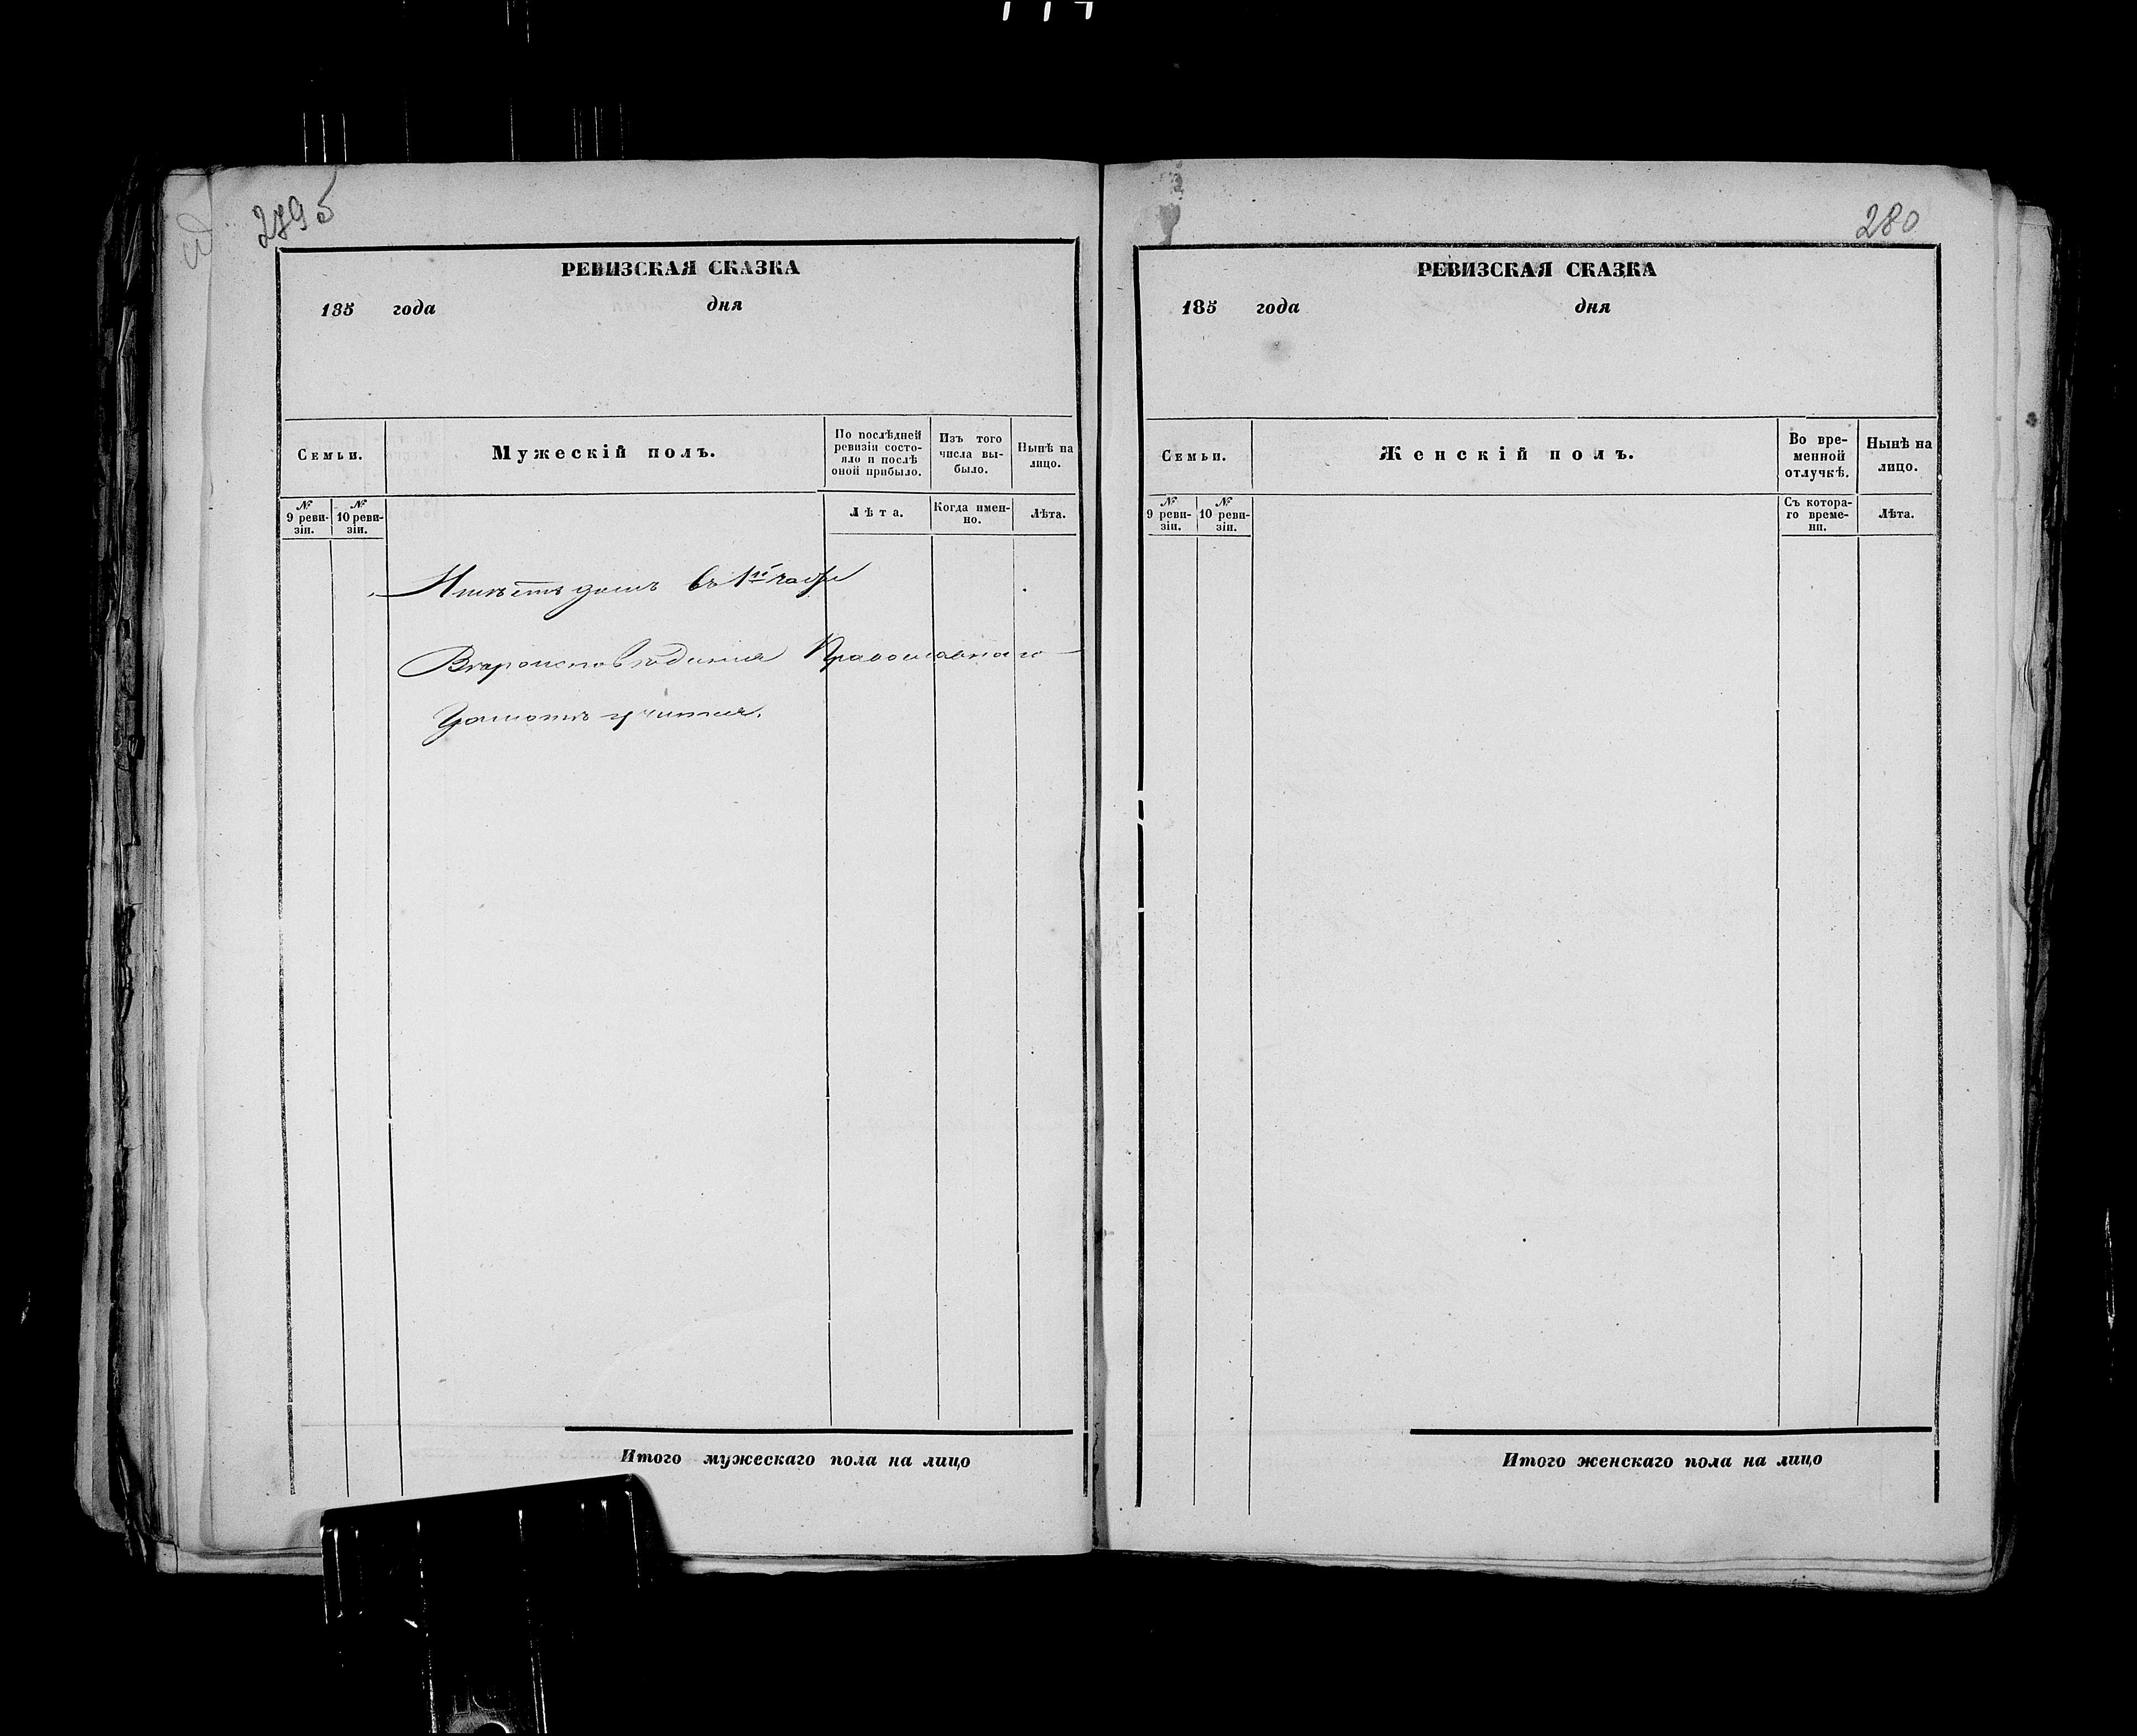 279 б
РЕВИЗСКАЯ СКАЗКА
185 года дня
Семьи.
Мужескій полъ.
По послѣдней ревизіи состояло и послѣ оной прибыло.
Изъ того числа выбыло.
Нынѣ на лицо.
№ 9 ревизіи.
№ 10 ревизіи.
Лѣта.
Когда именно.
Лѣта.
Имѣетъ домъ въ 1й части
Вѣроисповѣданія Православнаго
Грамотѣ учился.
Итого мужескаго пола на лицо
280
РЕВИЗСКАЯ СКАЗКА
185 года дня
Семьи.
Женскій полъ.
Во временной отлучкѣ.
Нынѣ на лицо.
№ 9 ревизіи.
№ 10 ревизіи.
Съ котораго времени.
Лѣта.
Итого женскаго пола на лицо